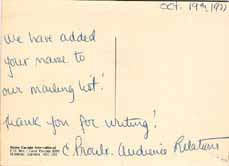 Oct. 19th, 1977
We have added
your name to
our mailing list!
Thank you for writing!
C. Proulx. Audience Relations
Radio Canada International